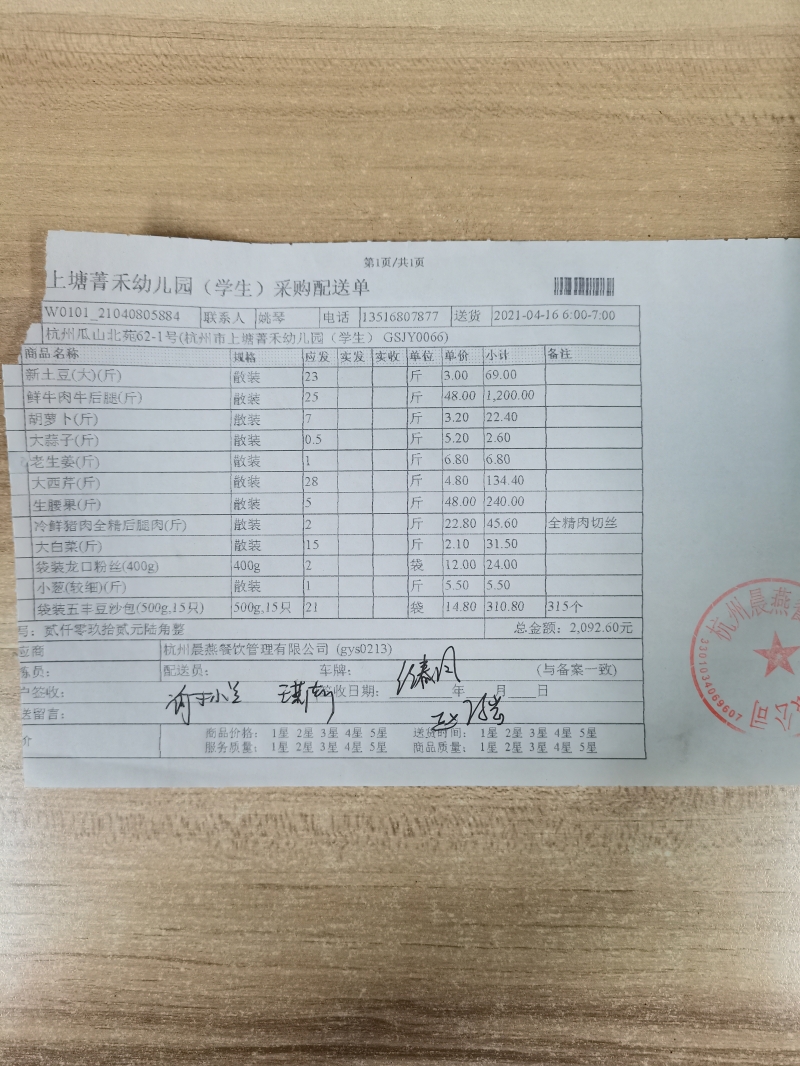 第1页/共1页
上塘菁禾幼儿园（学生）采购配送单
W0101_21040805884 联系人 姚琴 电话 13516807877 送货 2021-04-16 6:00-7:00
杭州瓜山北苑62-1号(杭州市上塘菁禾幼儿园（学生） GSJY0066)
商品名称 规格 应发 实发 实收 单位 单价 小计 备注
新土豆(大)(斤) 散装 23 斤 3.00 69.00
鲜牛肉牛后腿(斤) 散装 25 斤 48.00 1,200.00
胡萝卜(斤) 散装 7 斤 3.20 22.40
大蒜子(斤) 散装 0.5 斤 5.20 2.60
老生姜(斤) 散装 1 斤 6.80 6.80
大西芹(斤) 散装 28 斤 4.80 134.40
生腰果(斤) 散装 5 斤 48.00 240.00
冷鲜猪肉全精后腿肉(斤) 散装 2 斤 22.80 45.60 全精肉切丝
大白菜(斤) 散装 15 斤 2.10 31.50
袋装龙口粉丝(400g) 400g 2 袋 12.00 24.00
小葱(较细)(斤) 散装 1 斤 5.50 5.50
袋装五丰豆沙包(500g,15只) 500g,15只 21 袋 14.80 310.80 315个
号: 贰仟零玖拾贰元陆角整 总金额: 2,092.60元
应商 杭州晨燕餐饮管理有限公司 (gys0213)
员: 配送员: 车牌: (与备案一致)
户签收: 收日期: 年 月 日
送留言:
价 商品价格: 1星 2星 3星 4星 5星 送货时间: 1星 2星 3星 4星 5星
服务质量: 1星 2星 3星 4星 5星 商品质量: 1星 2星 3星 4星 5星
杭州晨燕餐
公司
3301034069607